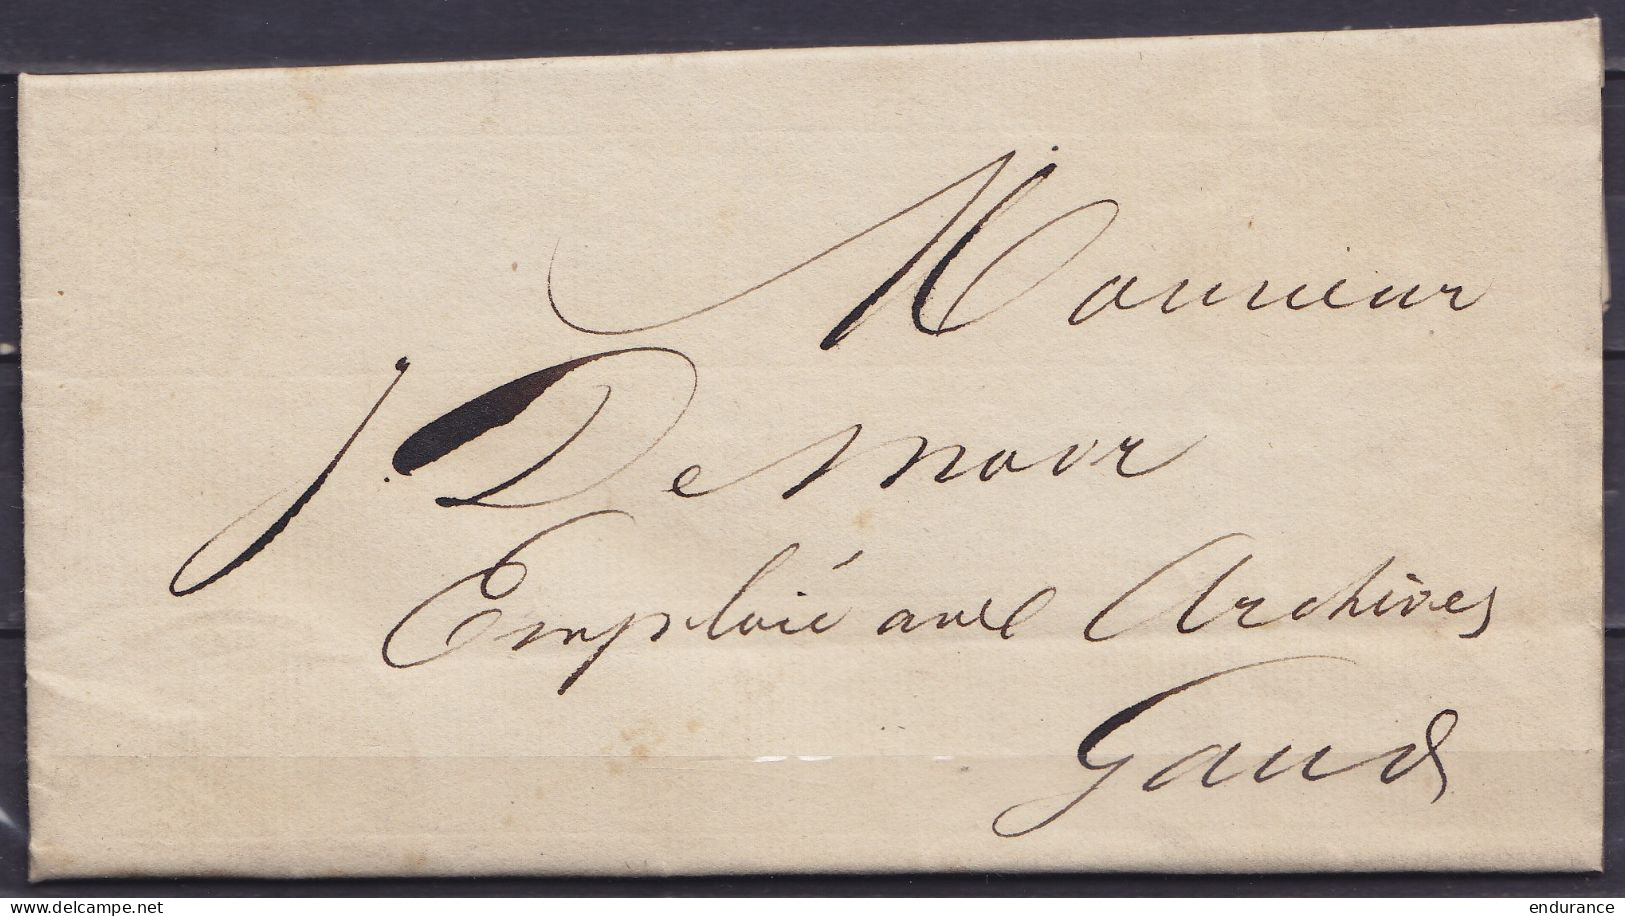 Monsieur
J. De Moor
Emploié aux Archives
Gand
www.delcampe.net
endurance